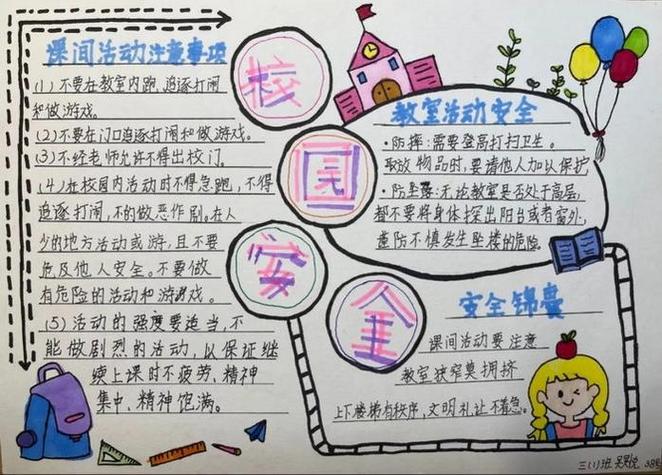 课间活动注意事项
(1)不要在教室内跑、追逐打闹
和做游戏。
(2)不要在门口追逐打闹和做游戏。
(3)不经老师允许不得出校门。
(4)在校园内活动时不得急跑，不得
追逐打闹，不的做恶作剧。在人
少的地方活动或游，且不要
危及他人安全。不要做
有危险的活动和游戏。
(5)活动的强度要适当，不
能做剧烈的活动，以保证继
续上课时不疲劳、精神
集中、精神饱满。
校
园
安
全
教室活动安全
·防摔：需要登高打扫卫生。
取放物品时，要请他人加以保护
·防坠落：无论教室是否处于高层，
都不要将身体探出阳台或者窗外，
谨防不慎发生坠楼的危险
安全锦囊
课间活动要注意
教室狭窄莫拥挤
上下楼梯有秩序，文明礼让不着急。
三(1)班